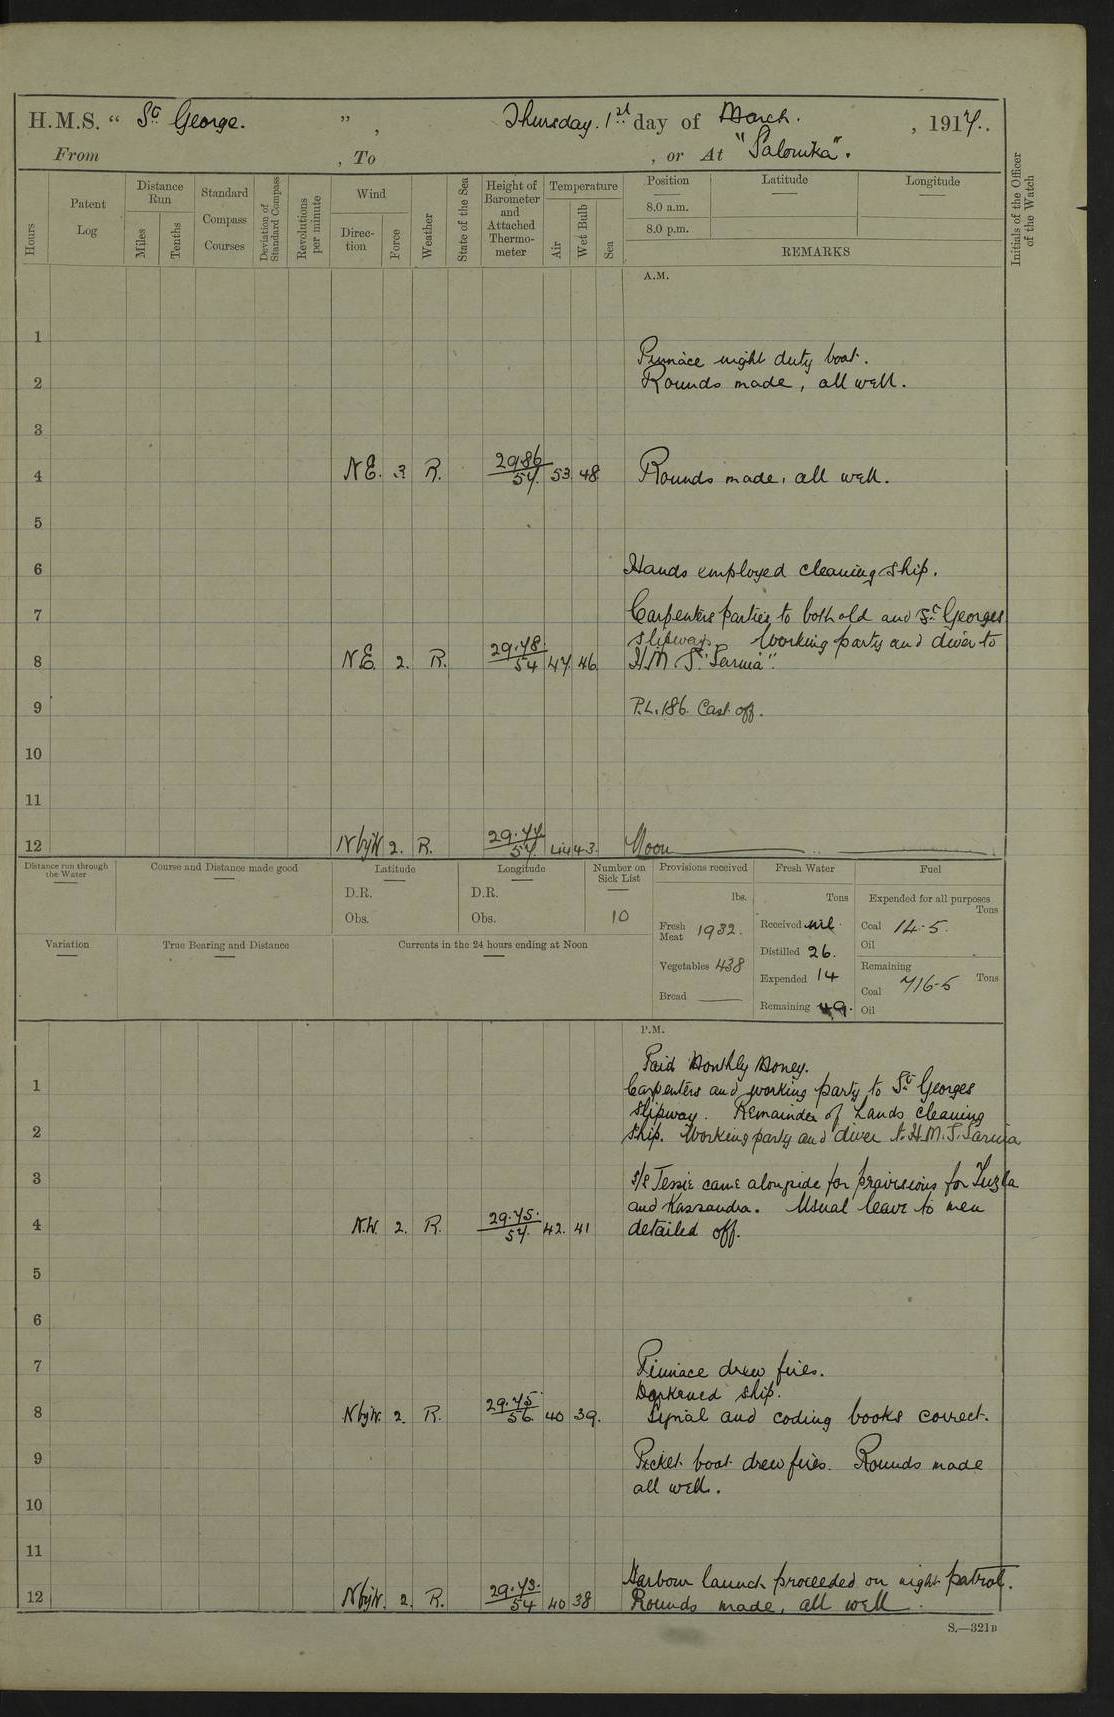 H.M.S. “ St George. ” , Thursday. 1st day of March. , 1917.
From , To , or At "Salonika".
Hours
Patent Log
Distance Run
Miles
Tenths
Standard Compass Courses
Deviation of Standard Compass
Revolutions per minute
Wind
Direction
Force
Weather
State of the Sea
Height of Barometer and Attached Thermometer
Temperature
Air
Wet Bulb
Sea
Position Latitude Longitude
8.0 a.m.
8.0 p.m.
REMARKS
Initials of the Officer of the Watch
A.M.
1
Pinnace night duty boat.
2 Rounds made, all well.
3
4 N.E. 3. R. 29.86/54. 53. 48. Rounds made, all well.
5
6 Hands employed cleaning ship.
7 Carpenters parties to both old and St Georges
slipways. Working party and diver to
8 N.E. 2. R. 29.78./54 47. 46. H M S. "Sarnia".
9 P.L. 186. Cast off.
10
11
12 N by W 2. R. 29.77/54. 44 43. Noon
Distance run through the Water
Course and Distance made good
Latitude
D.R.
Obs.
Longitude
D.R.
Obs.
Number on Sick List
10
Provisions received
lbs.
Fresh Meat 1932.
Vegetables 438
Bread
Fresh Water
Tons
Received nil.
Distilled 26.
Expended 14
Remaining 49.
Fuel
Expended for all purposes
Tons
Coal 14.5.
Oil
Remaining
Tons
Coal 716.5
Oil
Variation
True Bearing and Distance
Currents in the 24 hours ending at Noon
P.M.
Paid Monthly Money.
1 Carpenters and working party to St Georges
slipway. Remainder of hands cleaning
2 ship. Working party and diver to H.M.S. Sarnia
3 S/S Tessie came alongside for provisions for Tuzla
and Kassandra. Usual leave to men
4 N.W. 2. R. 29.75./54. 42. 41 detailed off.
5
6
7 Pinnace drew fires.
Darkened ship.
8 N by W. 2. R. 29.75/56. 40 39. Signal and coding books correct.
9 Picket boat drew fires. Rounds made
all well.
10
11
Harbour launch proceeded on night patrol.
12 N by W. 2. R. 29.73./54 40 38 Rounds made, all well.
S.—321B